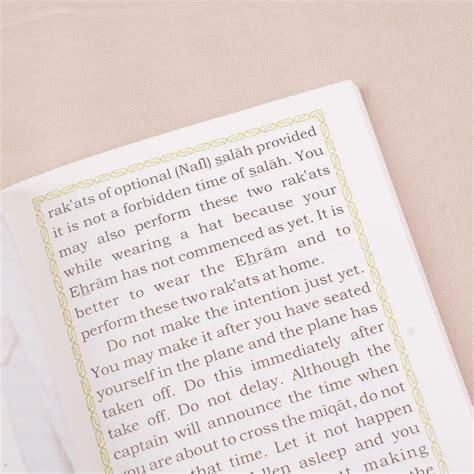 rak'ats of optional (Nafl) salāh provided
it is not a forbidden time of salāh. You
may also perform these two rak'ats
while wearing a hat because your
Ehrām has not commenced as yet. It is
better to wear the Ehrām and to
perform these two rak'ats at home.
Do not make the intention just yet.
You may make it after you have seated
yourself in the plane and the plane has
taken off. Do this immediately after
take off. Do not delay. Although the
captain will announce the time when
you are about to cross the miqāt, do not
that time. Let it not happen
asleep and you